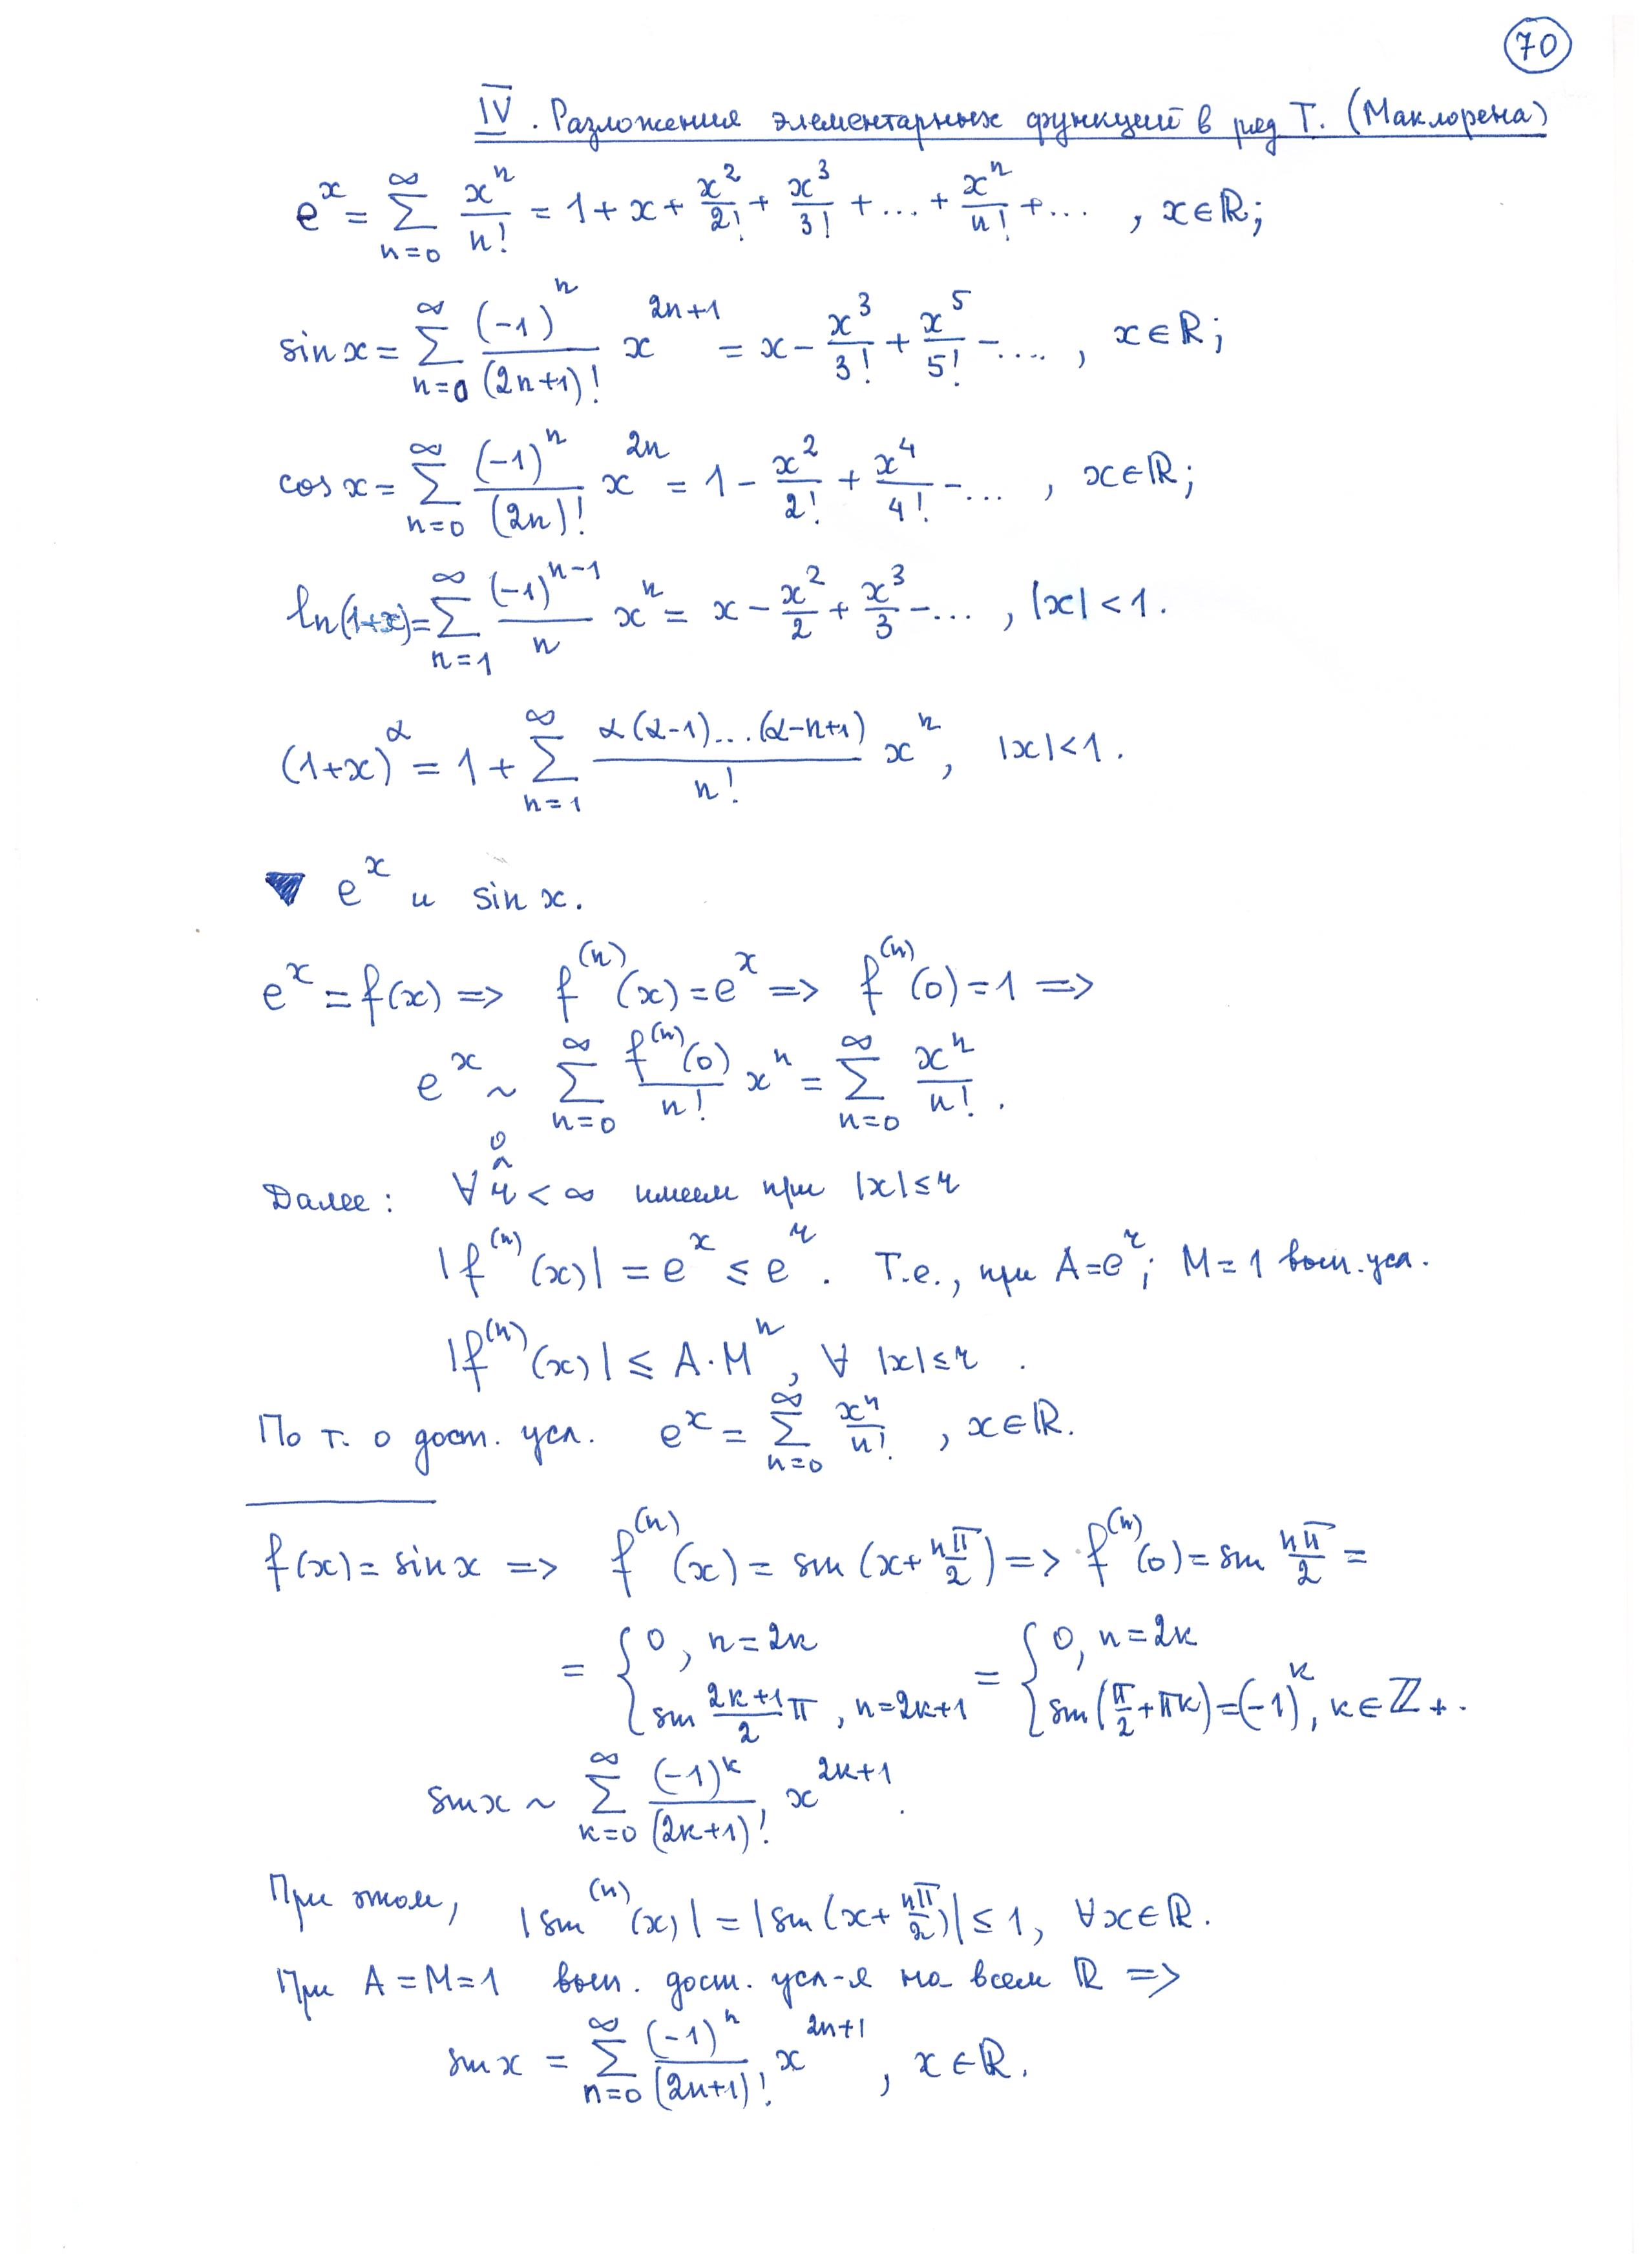 70
IV. Разложения элементарных функций в ряд Т. (Маклорена)
e^x = ∑_{n=0}^{∞} x^n/n! = 1 + x + x^2/2! + x^3/3! + ... + x^n/n! + ... , x∈ℝ;
sin x = ∑_{n=0}^{∞} (-1)^n/(2n+1)! x^{2n+1} = x - x^3/3! + x^5/5! - .... , x∈ℝ;
cos x = ∑_{n=0}^{∞} (-1)^n/(2n)! x^{2n} = 1 - x^2/2! + x^4/4! - ... , x∈ℝ;
ln(1+x) = ∑_{n=1}^{∞} (-1)^{n-1}/n x^n = x - x^2/2 + x^3/3 - ... , |x| < 1.
(1+x)^α = 1 + ∑_{n=1}^{∞} α(α-1)...(α-n+1)/n! x^n, |x|<1.
▼ e^x и sin x.
e^x = f(x) => f^{(n)}(x) = e^x => f^{(n)}(0) = 1 =>
e^x ~ ∑_{n=0}^{∞} f^{(n)}(0)/n! x^n = ∑_{n=0}^{∞} x^n/n! .
Далее: ∀ 0 < r < ∞ имеем при |x| ≤ r
|f^{(n)}(x)| = e^x ≤ e^r. Т.е., при A=e^r; M=1 вып. усл.
|f^{(n)}(x)| ≤ A·M^n, ∀ |x| ≤ r .
По т. о дост. усл. e^x = ∑_{n=0}^{∞} x^n/n! , x∈ℝ.
f(x) = sin x => f^{(n)}(x) = sin (x + nπ/2) => f^{(n)}(0) = sin nπ/2 =
= { 0, n=2k ; sin (2k+1)/2 π, n=2k+1 = { 0, n=2k ; sin(π/2 + πk) = (-1)^k, k∈ℤ+.
sin x ~ ∑_{k=0}^{∞} (-1)^k/(2k+1)! x^{2k+1}.
При этом, |sin^{(n)}(x)| = |sin (x + nπ/2)| ≤ 1, ∀x∈ℝ.
При A = M = 1 вып. дост. усл-я на всем ℝ =>
sin x = ∑_{n=0}^{∞} (-1)^n/(2n+1)! x^{2n+1}, x∈ℝ.